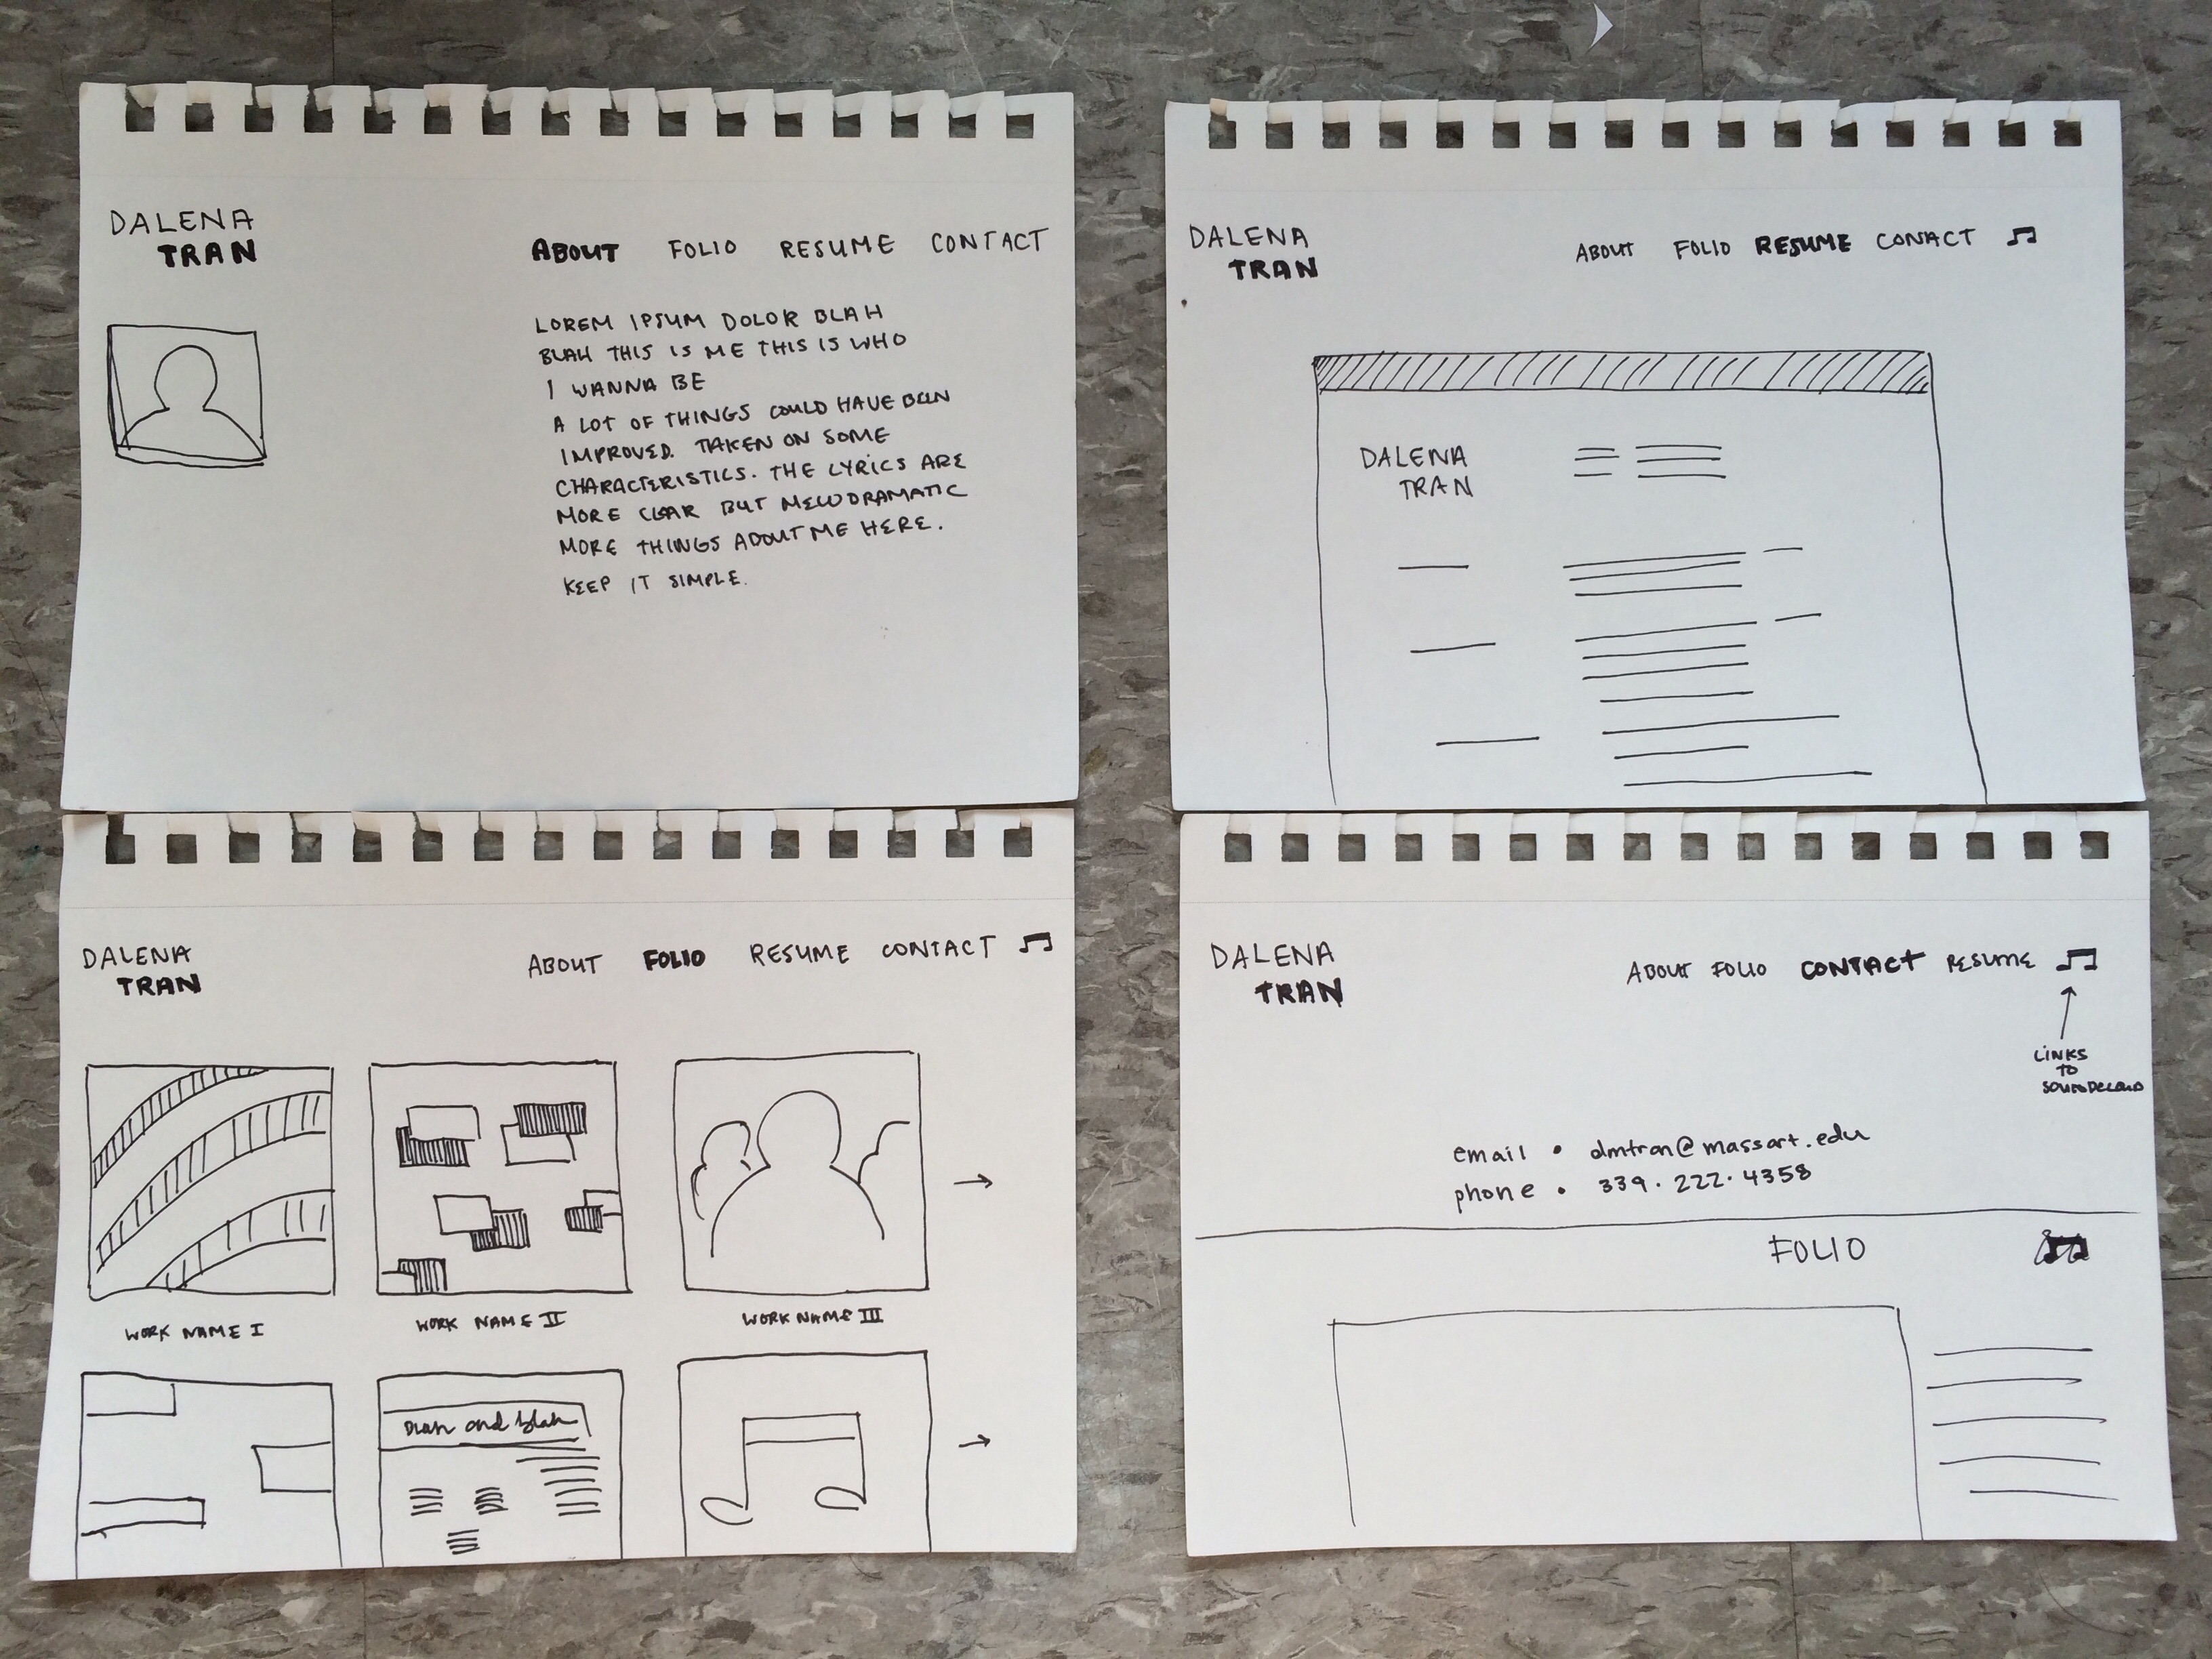 DALENA
TRAN
ABOUT FOLIO RESUME CONTACT
LOREM IPSUM DOLOR BLAH
BLAH THIS IS ME THIS IS WHO
I WANNA BE
A LOT OF THINGS COULD HAVE BEEN
IMPROVED. TAKEN ON SOME
CHARACTERISTICS. THE LYRICS ARE
MORE CLEAR BUT MELODRAMATIC
MORE THINGS ABOUT ME HERE.
KEEP IT SIMPLE.
DALENA
TRAN
ABOUT FOLIO RESUME CONACT
DALENA
TRAN
DALENA
TRAN
ABOUT FOLIO RESUME CONTACT
WORK NAME I
WORK NAME II
WORK NAME III
and blah
DALENA
TRAN
ABOUT FOLIO CONTACT RESUME
LINKS
TO
SOUNDCLOUD
email • dmtran@massart.edu
phone • 339.222.4358
FOLIO